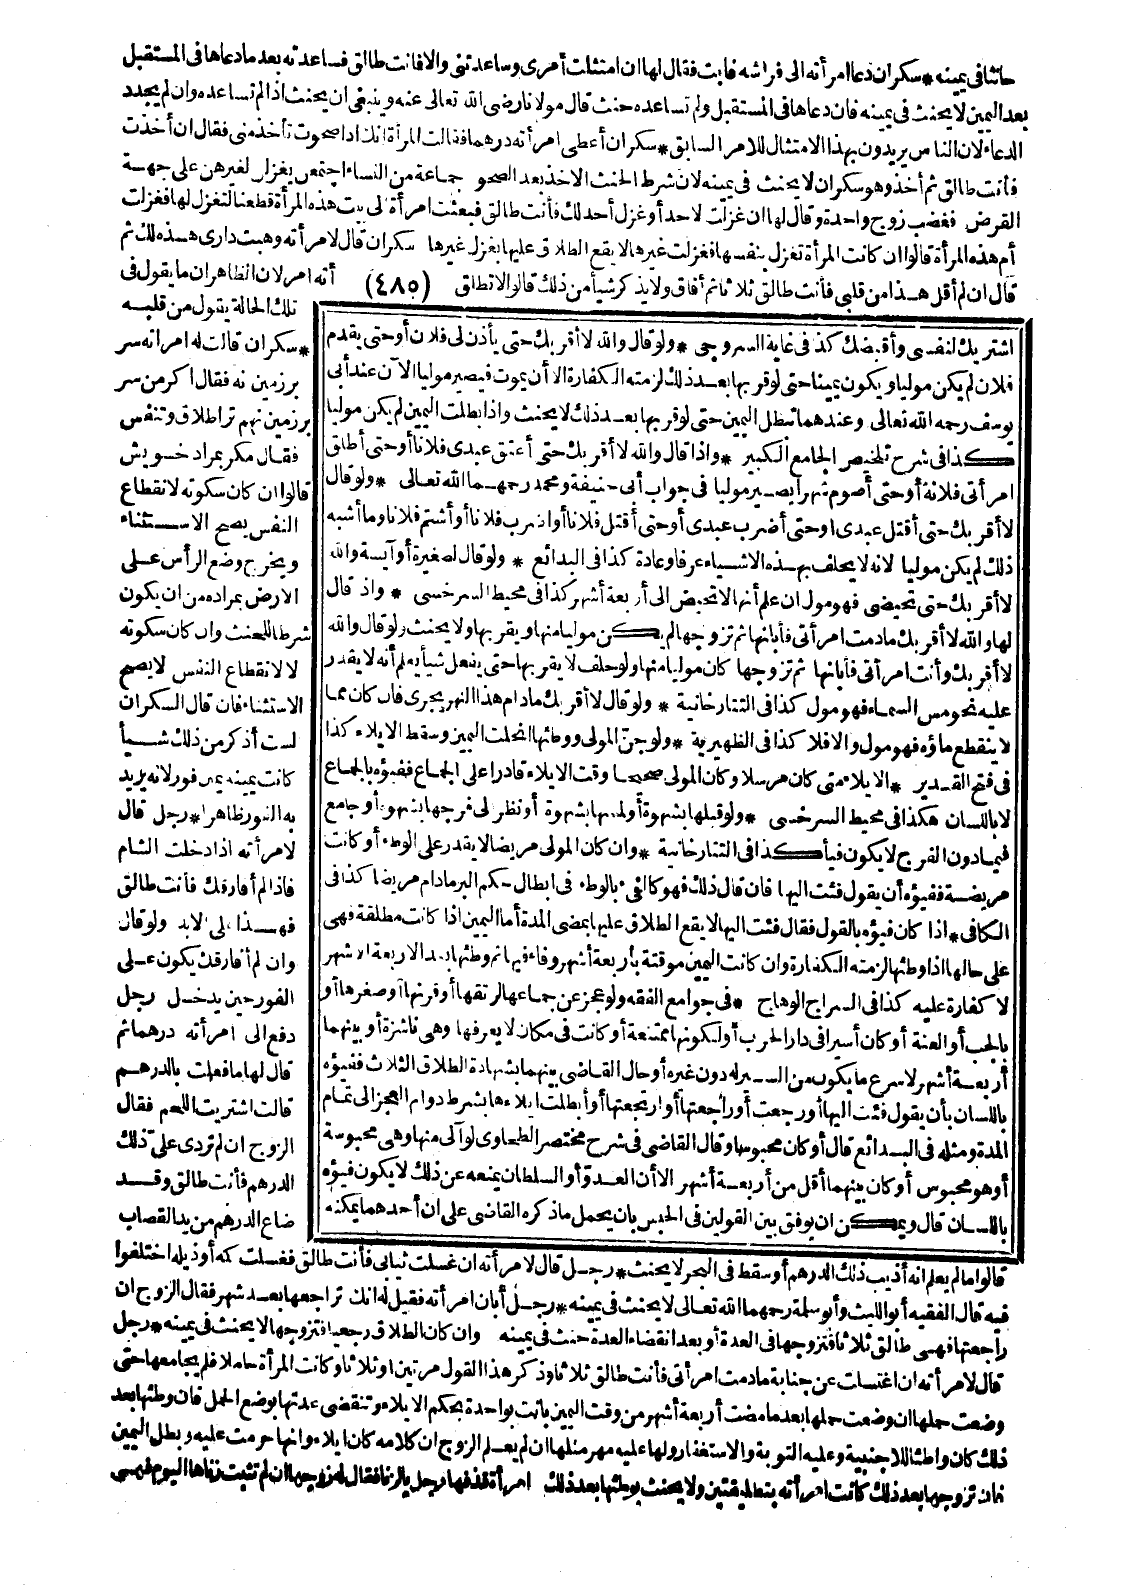 حانثا فى يمينه * سكران دعا امرأته الى فراشه فأبت فقال لها ان امتثلت أمرى وساعدتنى والا فانت طالق فساعدته بعد ما دعاها فى المستقبل
بعد اليمين لا يحنث فى يمينه فان دعاها فى المستقبل ولم تساعده حنث قال مولانا رضى الله تعالى عنه وينبغى ان يحنث اذا لم تساعده وان لم يجدد
الدعاء لان الناس يريدون بهذا الامتثال للامر السابق * سكران أعطى امرأته درهما فقالت المرأة انك اذا صحوت تأخذه منى فقال ان أخذت
فأنت طالق ثم أخذ وهو سكران لا يحنث فى يمينه لان شرط الحنث الاخذ بعد الصحو جماعة من النساء اجتمعن يغزلن لغيرهن على جهة
القرض فغضب زوج واحدة وقال لها ان غزلت لاحد أو غزل أحد لك فأنت طالق فبعثت امرأة الى بيت هذه المرأة قطعنا لتغزل لها فغزلت
أم هذه المرأة قالوا ان كانت المرأة تغزل بنفسها فغزلت غيرها لا يقع الطلاق عليها بغزل غيرها سكران قال لامرأته وهبت دارى هذه لك ثم
قال ان لم أقل هذا من قلبى فأنت طالق ثلاثا ثم أفاق ولا يذكر شيأ من ذلك قالوا لا تطلق
(٤٨٥)
أنه امر لان الظاهر ان ما يقول فى
تلك الحالة يقول من قلبه
* سكران قالت له امرأته سر
برزمين نه فقال اكر من سر
برزمين نهم ترا طلاق وتنفس
فقال مكر بمراد خويش
قالوا ان كان سكوته لانقطاع
النفس يصح الاستثناء
ويخرج وضع الرأس على
الارض بمراده من ان يكون
شرطا للحنث وان كان سكوته
لا لانقطاع النفس لا يصح
الاستثناء فان قال السكران
لست أذكر من ذلك شيأ
كانت يمينه يمين فور لانه يريد
به الفور ظاهرا * رجل قال
لامرأته اذا دخلت الشام
فاذا لم أفارقك فأنت طالق
فهذا على الابد ولو قال
وان لم أفارقك يكون على
الفور حين يدخل رجل
دفع الى امرأته درهما ثم
قال لها ما فعلت بالدرهم
قالت اشتريت اللحم فقال
الزوج ان لم تردى على ذلك
الدرهم فأنت طالق وقد
ضاع الدرهم من يد القصاب
اشتريك لنفسى وأقبضك كذا فى غاية السروجى * ولو قال والله لا أقربك حتى يأذن لى فلان أو حتى يقدم
فلان لم يكن موليا ويكون يمينا حتى لو قربها بعد ذلك لزمته الكفارة الا أن يموت فيصير موليا الآن عند أبى
يوسف رحمه الله تعالى وعندهما تبطل اليمين حتى لو قربها بعد ذلك لا يحنث واذا بطلت اليمين لم يكن موليا
كذا فى شرح تلخيص الجامع الكبير * واذا قال والله لا أقربك حتى أعتق عبدى فلانا أو حتى أطلق
امرأتى فلانة أو حتى أصوم شهرا يصير موليا فى جواب أبى حنيفة ومحمد رحمهما الله تعالى * ولو قال
لا أقربك حتى أقتل عبدى أو حتى أضرب عبدى أو حتى أقتل فلانا أو أضرب فلانا أو أشتم فلانا وما أشبه
ذلك لم يكن موليا لانه لا يحلف بهذه الاشياء عرفا وعادة كذا فى البدائع * ولو قال لصغيرة أو آيسة والله
لا أقربك حتى تحيضى فهو مول ان علم أنها لا تحيض الى أربعة أشهر كذا فى محيط السرخسى * واذ قال
لها والله لا أقربك مادمت امرأتى فأبانها ثم تزوجها لم يكن موليا منها ويقربها ولا يحنث ولو قال والله
لا أقربك وأنت امرأتى فأبانها ثم تزوجها كان موليا منها ولو حلف لا يقربها حتى يفعل شيأ يعلم أنه لا يقدر
عليه نحو مس السماء فهو مول كذا فى التتارخانية * ولو قال لا أقربك مادام هذا النهر يجرى فان كان مما
لا ينقطع ماؤه فهو مول والا فلا كذا فى الظهيرية * ولو جن المولى ووطئها انحلت اليمين وسقط الايلاء كذا
فى فتح القدير * الايلاء متى كان مرسلا وكان المولى صحيحا وقت الايلاء قادرا على الجماع ففيؤه بالجماع
لا باللسان هكذا فى محيط السرخسى * ولو قبلها بشهوة أو لمسها بشهوة أو نظر الى فرجها بشهوة أو جامع
فيما دون الفرج لا يكون فيأ كذا فى التتارخانية * وان كان المولى مريضا لا يقدر على الوطء أو كانت
مريضة ففيؤه أن يقول فئت اليها فان قال ذلك فهو كالفىء بالوطء فى ابطال حكم البر مادام مريضا كذا فى
الكافى * اذا كان فيؤه بالقول فقال فئت اليها لا يقع الطلاق عليها بمضى المدة أما اليمين اذا كانت مطلقة فهى
على حالها اذا وطئها لزمته الكفارة وان كانت اليمين موقتة بأربعة أشهر وفاء فيها ثم وطئها بعد الاربعة الاشهر
لا كفارة عليه كذا فى السراج الوهاج * فى جوامع الفقه ولو عجز عن جماعها لرتقها أو قرنها أو صغرها أو
بالجب أو العنة أو كان أسيرا فى دار الحرب أو لكونها ممتنعة أو كانت فى مكان لا يعرفها وهى ناشزة أو بينهما
أربعة أشهر لاسرع ما يكون من السير له دون غيره أو حال القاضى بينهما بشهادة الطلاق الثلاث ففيؤه
باللسان بأن يقول فئت اليها أو رجعت أو راجعتها أو ارتجعتها أو أبطلت ايلاءها بشرط دوام العجز الى تمام
المدة ومثله فى البدائع قال أو كان محبوسا وقال القاضى فى شرح مختصر الطحاوى لو آلى منها وهى محبوسة
أو هو محبوس أو كان بينهما أقل من أربعة أشهر الا أن العدو أو السلطان يمنعه عن ذلك لا يكون فيؤه
باللسان قال ويمكن ان يوفق بين القولين فى الحبس بان يحمل ما ذكره القاضى على ان أحدهما يمكنه
قالوا ما لم يعلم انه أذيب ذلك الدرهم أو سقط فى البحر لا يحنث * رجل قال لامرأته ان غسلت ثيابى فأنت طالق فغسلت كمه أو ذيله اختلفوا
فيه قال الفقيه أبو الليث وأبو سلمة رحمهما الله تعالى لا يحنث فى يمينه * رجل أبان امرأته فقيل له انك تراجعها بعد شهر فقال الزوج ان
راجعتها فهى طالق ثلاثا فتزوجها فى العدة أو بعد انقضاء العدة حنث فى يمينه وان كان الطلاق رجعيا فتزوجها لا يحنث فى يمينه * رجل
قال لامرأته ان اغتسلت عن جنابة مادمت امرأتى فأنت طالق ثلاثا وذكر هذا القول مرتين او ثلاثا وكانت المرأة حاملا فلم يجامعها حتى
وضعت حملها ان وضعت حملها بعد ما مضت أربعة أشهر من وقت اليمين بانت بواحدة بحكم الايلاء وتنقضى عدتها بوضع الحمل فان وطئها بعد
ذلك كان واطئا للاجنبية وعليه التوبة والاستغفار ولها عليه مهر مثلها ان لم يعلم الزوج ان كلامه كان ايلاء وانها حرمت عليه وبطل اليمين
فان تزوجها بعد ذلك كانت امرأته بتطليقتين ولا يحنث بوطئها بعد ذلك امرأة قذفها رجل بالزنا فقال له زوجها ان لم تثبت زناها اليوم فهى